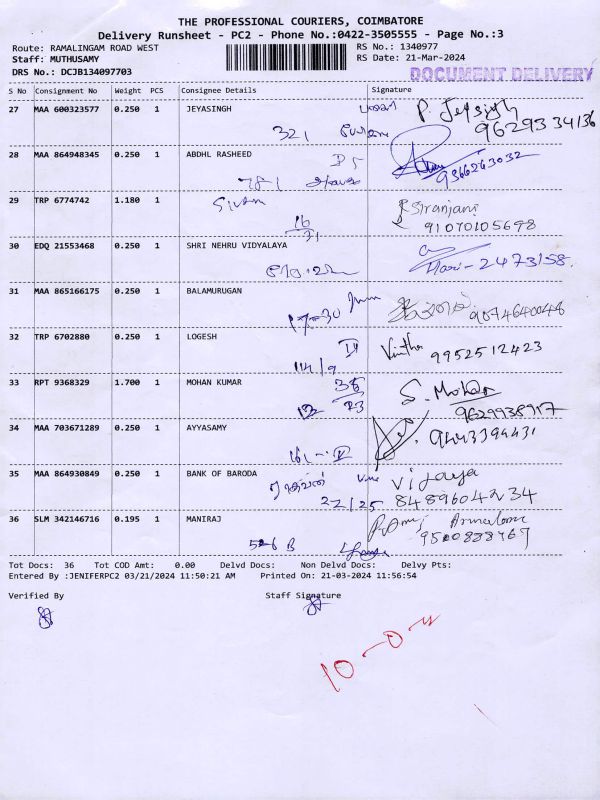 THE PROFESSIONAL COURIERS, COIMBATORE
Delivery Runsheet - PC2 - Phone No.:0422-3505555 - Page No.:3
Route: RAMALINGAM ROAD WEST RS No.: 1340977
Staff: MUTHUSAMY RS Date: 21-Mar-2024
DRS No.: DCJB134097703 DOCUMENT DELIVERY
S No Consignment No Weight PCS Consignee Details Signature
27 MAA 600323577 0.250 1 JEYASINGH P. Jeysigh
321 9629334136
28 MAA 864948345 0.250 1 ABDHL RASHEED
78-1 9366263032
29 TRP 6774742 1.180 1 Sivam Siranjani
16/31 91070105698
30 EDQ 21553468 0.250 1 SHRI NEHRU VIDYALAYA
Hari - 2473158.
31 MAA 865166175 0.250 1 BALAMURUGAN
17-30 9874640048
32 TRP 6702880 0.250 1 LOGESH
114/9 IV Vinitha 9952512423
33 RPT 9368329 1.700 1 MOHAN KUMAR S. Mohan
13 23 9629938917
34 MAA 703671289 0.250 1 AYYASAMY
9443399431
35 MAA 864930849 0.250 1 BANK OF BARODA Vijaya
22/25 8489604234
36 SLM 342146716 0.195 1 MANIRAJ
526 B 9500888769
Tot Docs: 36 Tot COD Amt: 0.00 Delvd Docs: Non Delvd Docs: Delvy Pts:
Entered By :JENIFERPC2 03/21/2024 11:50:21 AM Printed On: 21-03-2024 11:56:54
Verified By Staff Signature